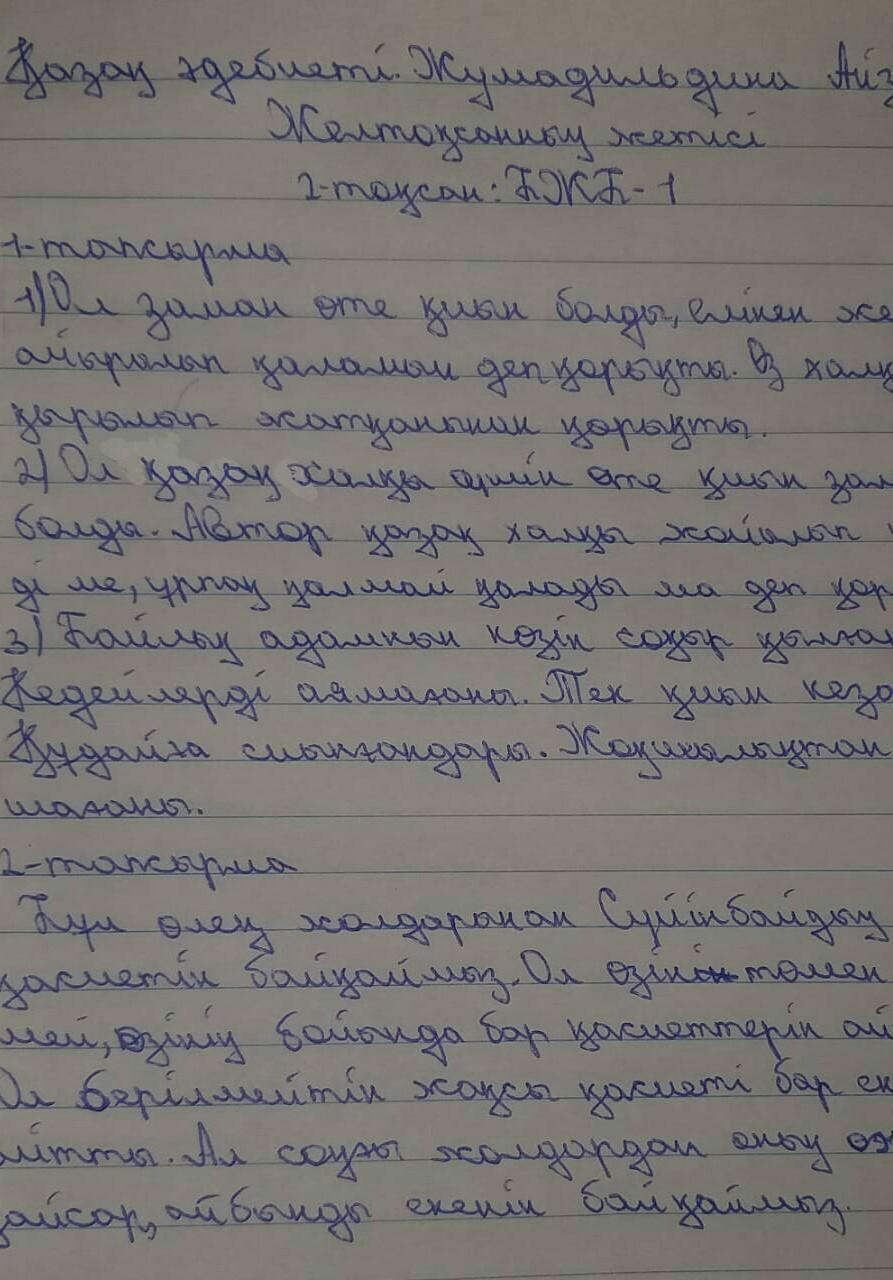 Қазақ әдебиеті. Жумадильдина Айз
Желтоқсанның жетісі
2-тоқсан: БЖБ-1
1-тапсырма
1) Ол заман өте қиын болды, елінен же
айырылып қаламын деп қорықты. Өз халқ
қырылып жатқанынан қорықты.
2) Ол қазақ халқы үшін өте қиын зам
болды. Автор қазақ халқы жойылып
ді ме, ұрпақ қалмай қалады ма деп қор
3) Байлық адамның көзін соқыр қылға
Кедейлерді аямағаны. Тек қиын кезд
Құдайға сыйынғандары. Жақсылықтан
шағаны.
2-тапсырма
Бұл өлең жолдарынан Сүйінбайдың
қасиетін байқаймыз. Ол өзін төмен
мей, өзінің бойында бар қасиеттерін ай
Ол берілмейтін жақсы қасиеті бар ек
йтты. Ал соңғы жолдардан оның өж
қайсар, айбынды екенін байқаймыз.